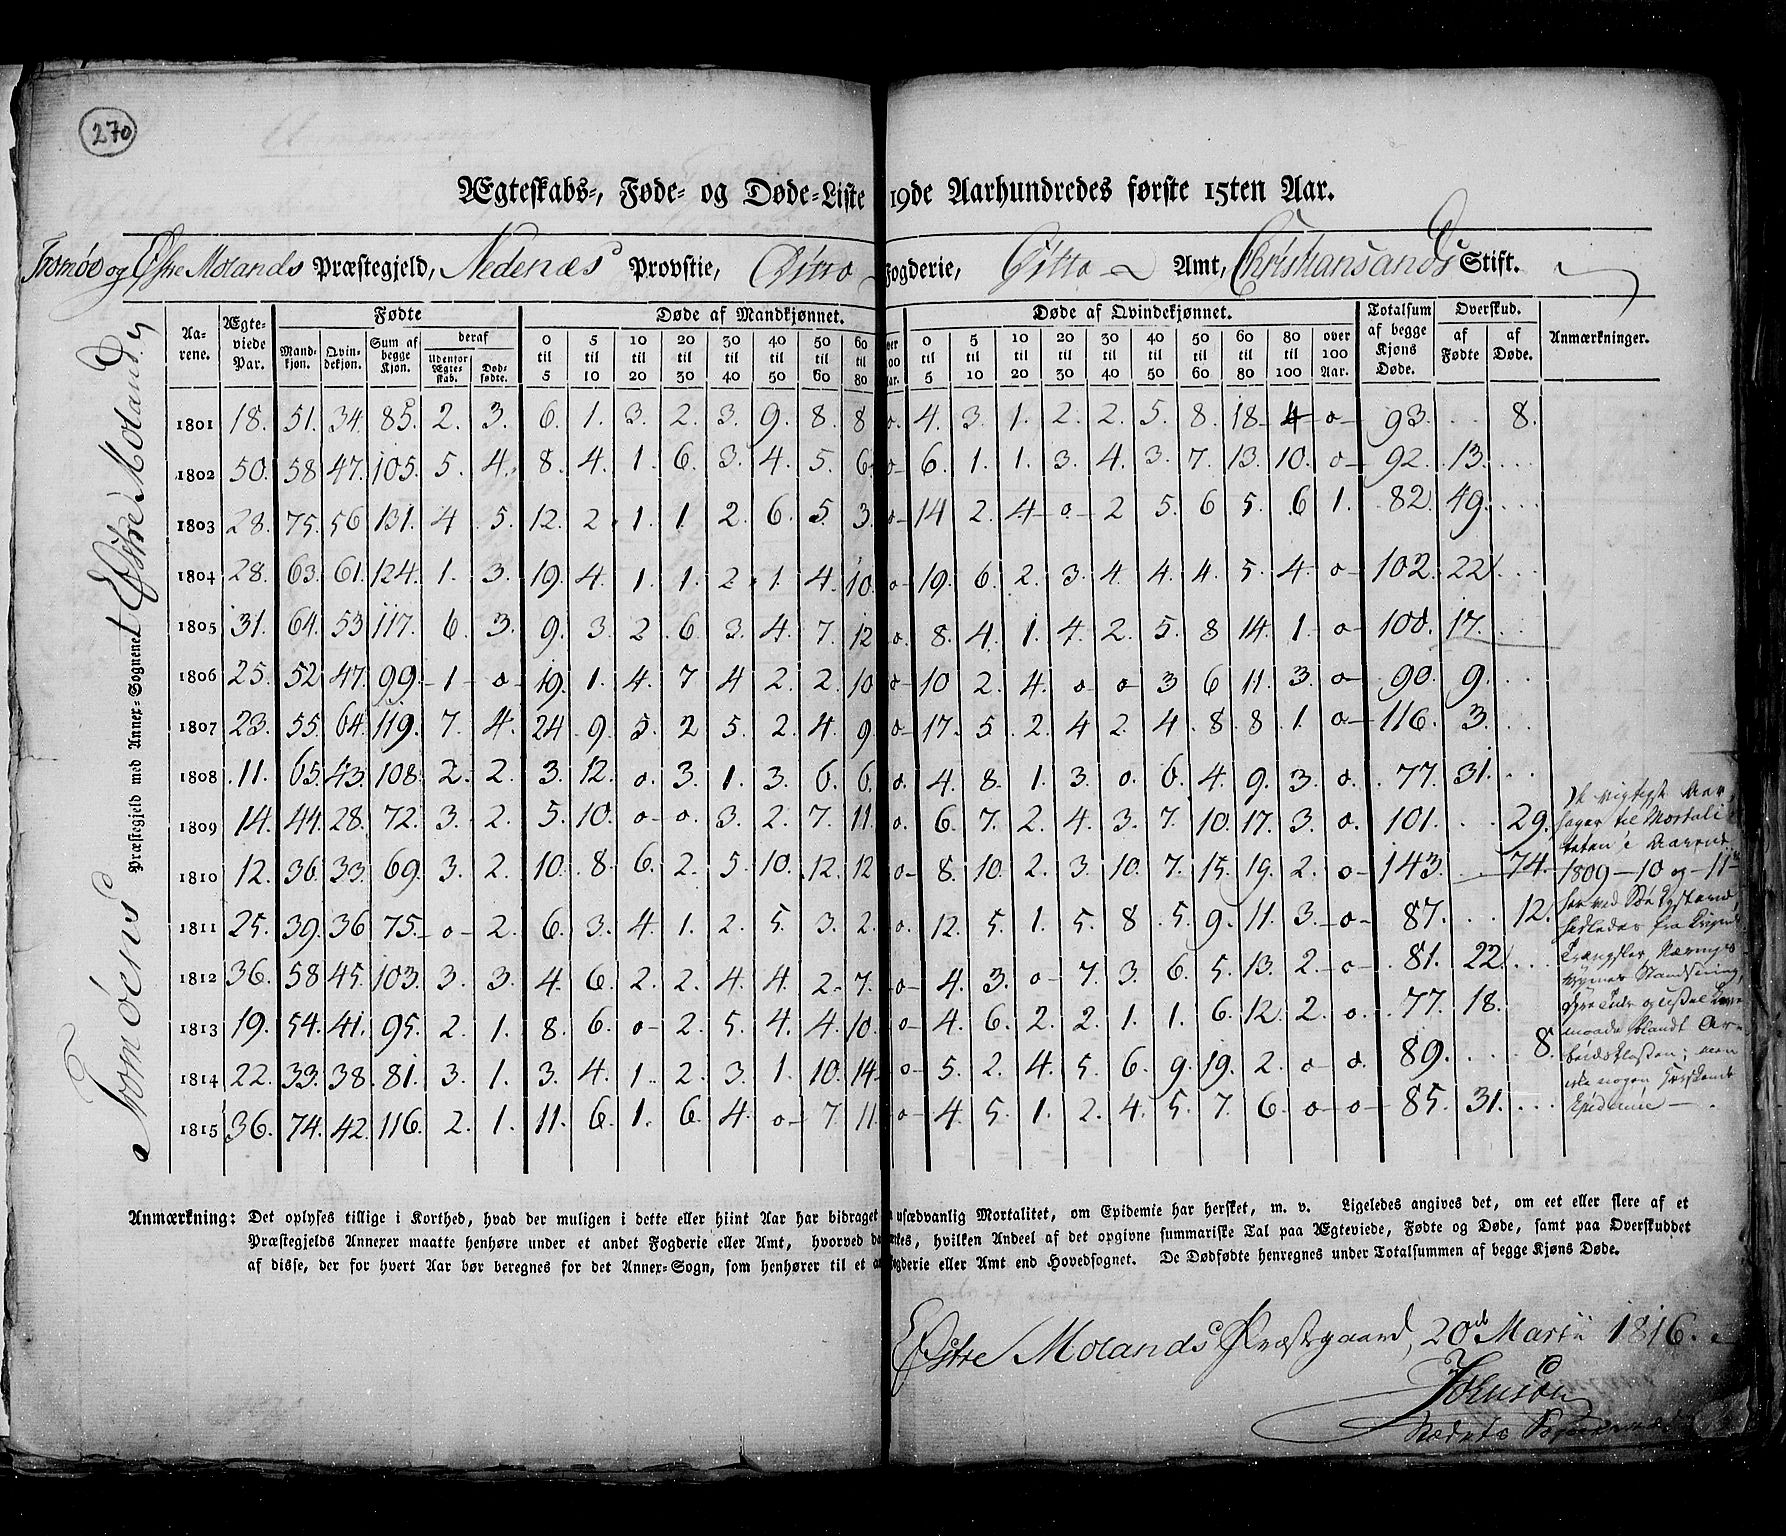 270
Ægteskabs-, Føde- og Døde-Liste 19de Aarhundredes første 15ten Aar.
Tromøe og Østre Molands Præstegjeld, Nedenæs Provstie, Ditto Fogderie, Ditto Amt, Christiansands Stift.
Tromøens Præstegjeld med Annex-Sognene Østre Moland
Aarene. Ægteviede Par. Fødte Døde af Mandkjønnet. Døde af Qvindekjønnet. Totalsum af begge Kjøns Døde. Overskud. Anmærkninger.
Mandkjøn. Qvindekjøn. Sum af begge Kjøn. deraf Udenfor Ægteskab. Dødfødte. 0 til 5 5 til 10 10 til 20 20 til 30 30 til 40 40 til 50 50 til 60 60 til 80 0 til 5 5 til 10 10 til 20 20 til 30 30 til 40 40 til 50 50 til 60 60 til 80 80 til 100 over 100 Aar. af Fødte af Døde.
1801 18. 51. 34. 85. 2. 3. 6. 1. 3. 2. 3. 9. 8. 8 0. 4. 3. 1. 2. 2. 5. 8. 18. 4 0 93. 8.
1802 50. 58 47. 105. 5. 4. 8. 4. 1. 6. 3. 4. 5. 6. 0 6. 1. 1. 3. 4. 3. 7. 13. 10. 0 92. 13.
1803 28. 75. 56 131. 4 5. 12. 2. 1. 1. 2. 6. 5. 3. 0 14 2. 4 0 2 5. 6 5. 6 1. 82. 49.
1804 28. 63. 61. 124. 1. 3. 19. 4. 1. 1. 2. 1. 4. 10. 0 19. 6. 2. 3. 4. 4. 4. 5. 4. 0 102. 22.
1805 31. 64. 53 117. 6. 3. 9. 3. 2. 6. 3. 4. 7. 12 0. 8. 4. 1. 4. 2. 5. 8 14. 1. 0 100. 17.
1806 25. 52 47. 99 1 0 19. 1. 4. 7 4 2. 2. 10 0 10 2. 4. 0 0 3 6 11. 3. 0 90. 9.
1807 23. 55. 64. 119. 7. 4. 24 9. 5. 2 5. 2. 4. 9. 0 17. 5. 2. 4 2. 4. 8. 8. 1. 0 116. 3.
1808 11. 65. 43. 108. 2. 2. 3. 12. 0. 3. 1. 3. 6. 6. 0. 4. 8. 1. 3. 0. 6. 4. 9. 3. 0. 77. 31.
1809 14. 44. 28. 72. 3. 2. 5. 10. 0 0. 3. 2. 7. 11. 0. 6. 7. 2. 4. 3. 7. 10. 17. 3. 0. 101. 29.
1810 12. 36. 33. 69. 3. 2. 10. 8. 6. 2. 5. 10. 12. 12 0 8. 10. 2. 3. 10. 7. 15. 19. 2. 0 143. 74.
1811 25. 39. 36 75. 0 2. 6. 3. 4. 1. 2. 5. 3. 2. 0. 12. 5. 1. 5. 8 5. 9. 11. 3. 0 87. 12.
1812 36. 58 45. 103. 3. 3. 4. 6. 2. 2. 4. 4. 2. 7. 0 4. 3. 0 7. 3. 6. 5. 13. 2. 0 81. 22.
1813 19. 54. 41. 95. 2. 1. 8. 6. 0 2. 5. 4. 4. 10. 0 4. 6. 2. 2. 1. 1. 6. 12. 2. 0. 77. 18.
1814 22. 33. 38. 81. 3. 1. 3. 4. 1. 2. 3. 1. 10. 14 0 5. 2. 4. 5. 6. 9. 19. 2. 0 0. 89. 8.
1815 36. 74. 42. 116. 2. 1. 11. 6. 1. 6. 4 0 7. 11. 0 4. 5. 1. 2. 4. 5. 7. 6. 0 0 85. 31.
De vigtigste Aar
sager til Mortali
teten i Aarene
1809 - 10 og - 11
Trængsler, Nærings
blandt Ar
Epidemie
Anmærkning: Det oplyses tillige i Korthed, hvad der muligen i dette eller hiint Aar har bidraget usædvanlig Mortalitet, om Epidemie har hersket, m. v. Ligeledes angives det, om eet eller flere af et
Præstegjelds Annexer maatte henhøre under et andet Fogderie eller Amt, hvorved hvilken Andeel af det opgivne summariske Tal paa Ægteviede, Fødte og Døde, samt paa Overskuddet
af disse, der for hvert Aar bør beregnes for det Annex-Sogn, som henhører til et eller Amt end Hovedsognet. De Dødfødte henregnes under Totalsummen af begge Kjøns Døde.
Østre Molands Præstegaard, 20de Martii 1816.